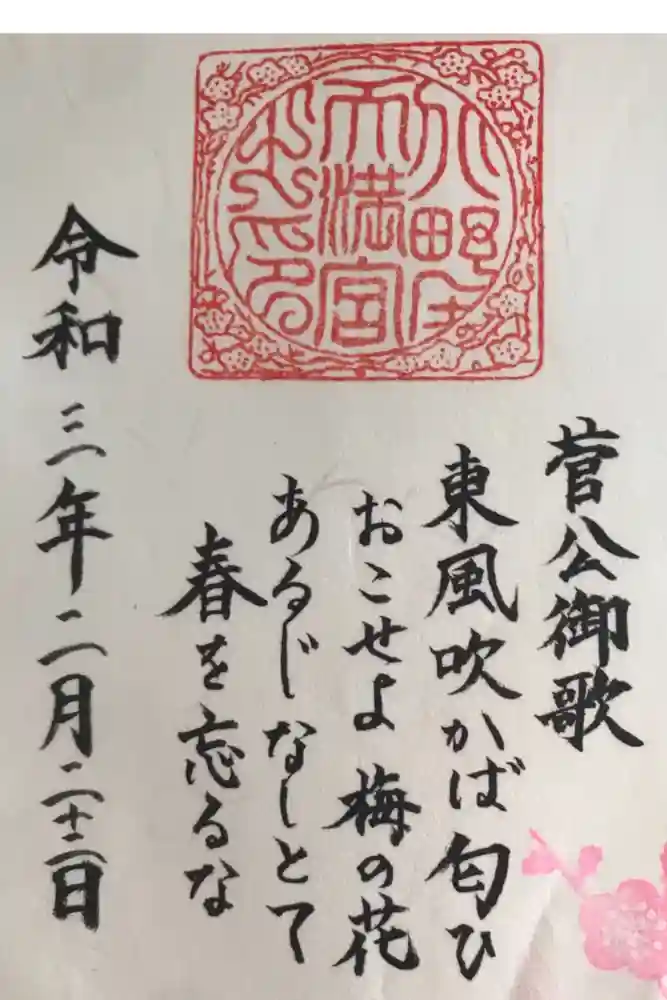 天満宮
之印
菅公御歌
東風吹かば匂ひ
おこせよ梅の花
あるじなしとて
春を忘るな
令和三年二月二十二日